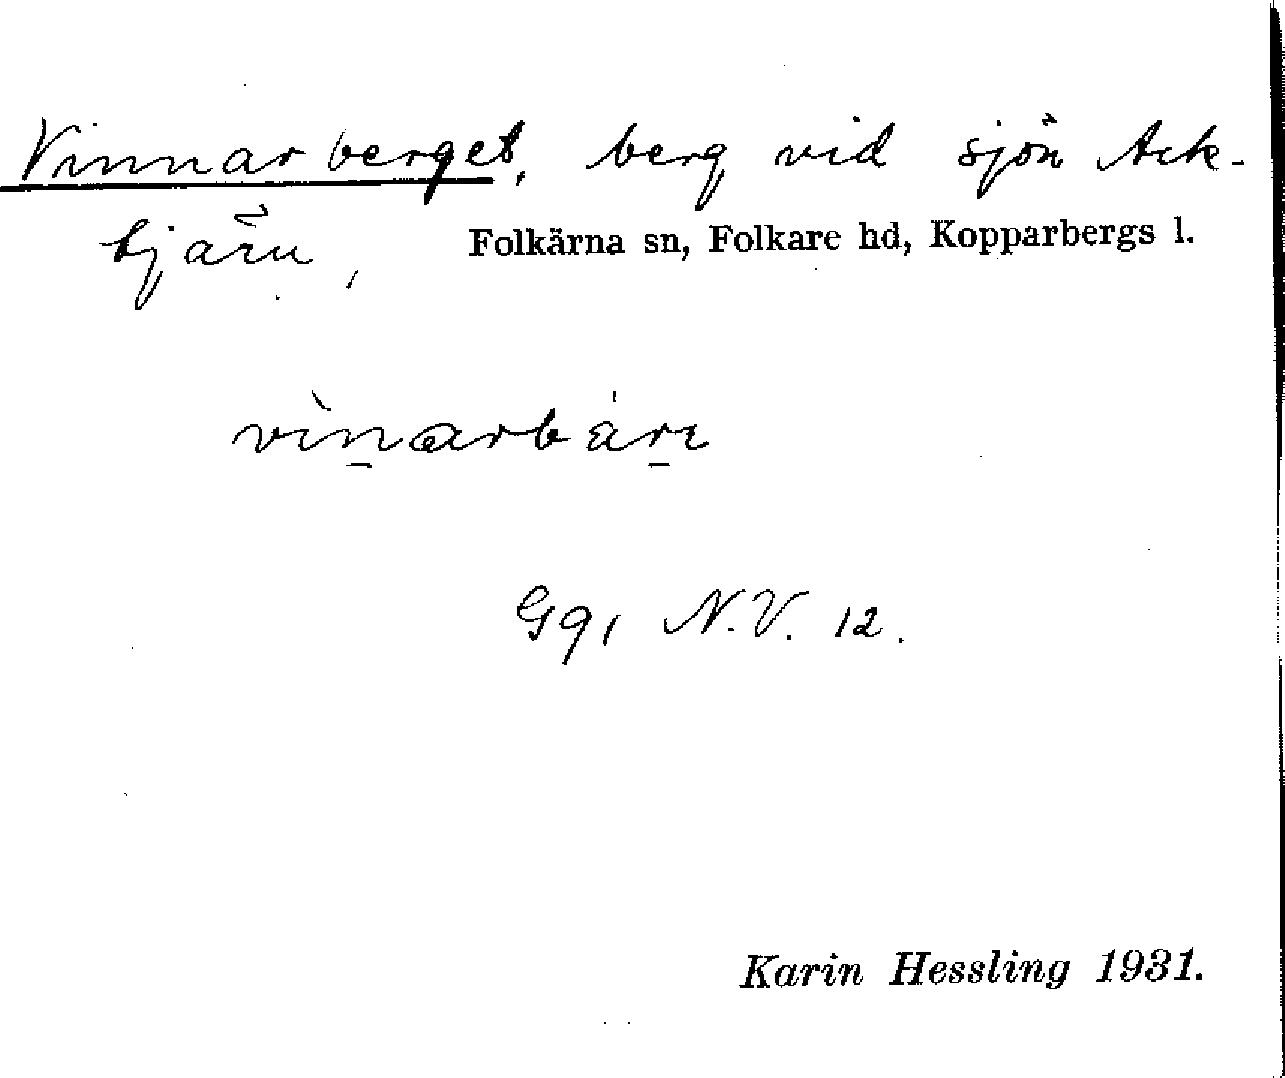 Vinnarberget, berg vid sjön Ack-
tjärn, Folkärna sn, Folkare hd, Kopparbergs l.
vìn̠arbár̠ɩ
Gg, N.V. 12.
Karin Hessling 1931.